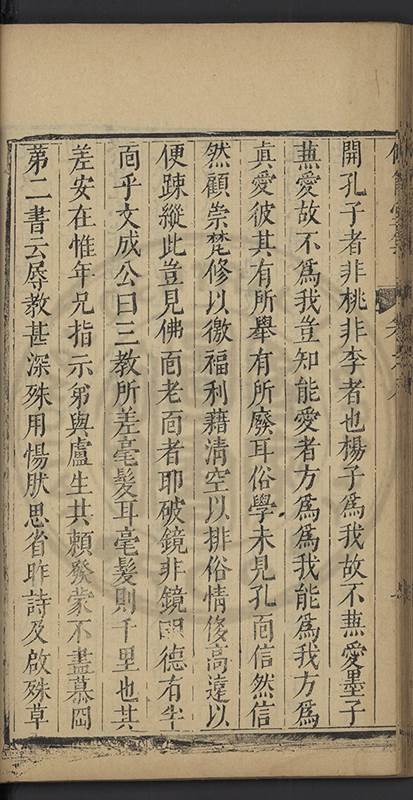 開孔子者非桃非李者也楊子爲我故不兼愛墨子
兼愛故不爲我豈知能愛者方爲爲我能爲我方爲
真愛彼其有所舉有所廢耳俗學未見孔面信然信
然顧崇梵修以徼福利藉清空以排俗情侈高遠以
便踈縱此豈見佛面老面者耶破鏡非鏡 德有半
面乎文成公曰三教所差毫髮耳毫髮則千里也其
差安在惟年兄指示弟與盧生共賴發蒙不盡慕罔
第二書云辱教甚深殊用惕肰思省昨詩及啟殊草